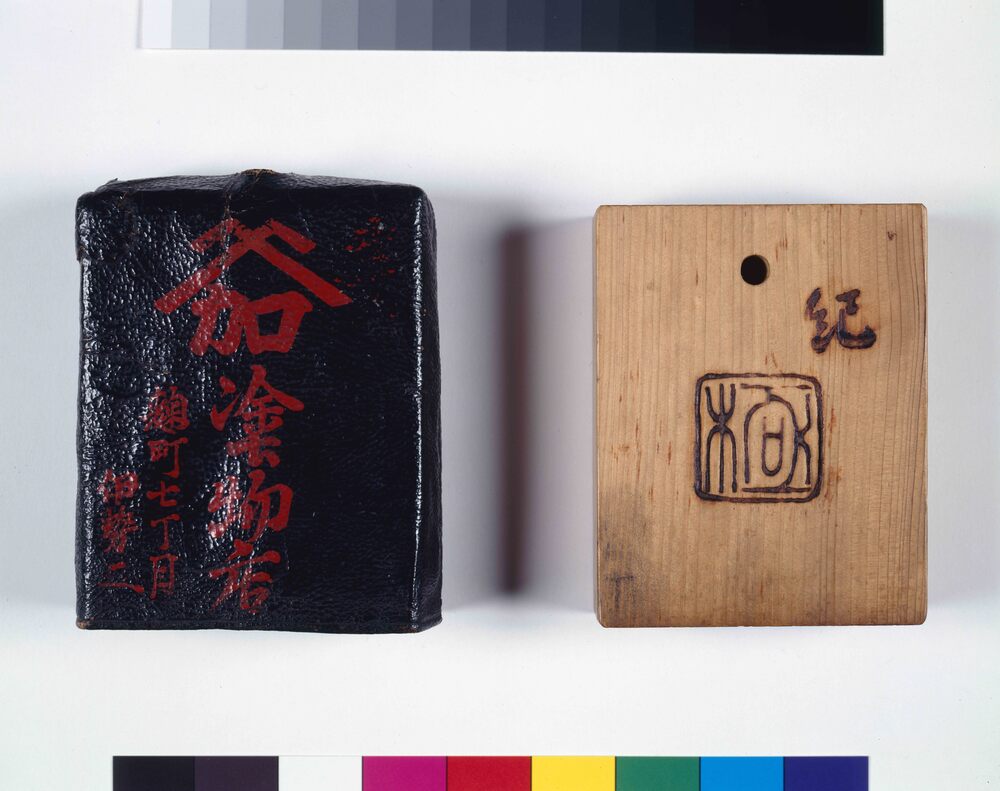 加
塗物店
麹町七丁目
伊勢二
紀